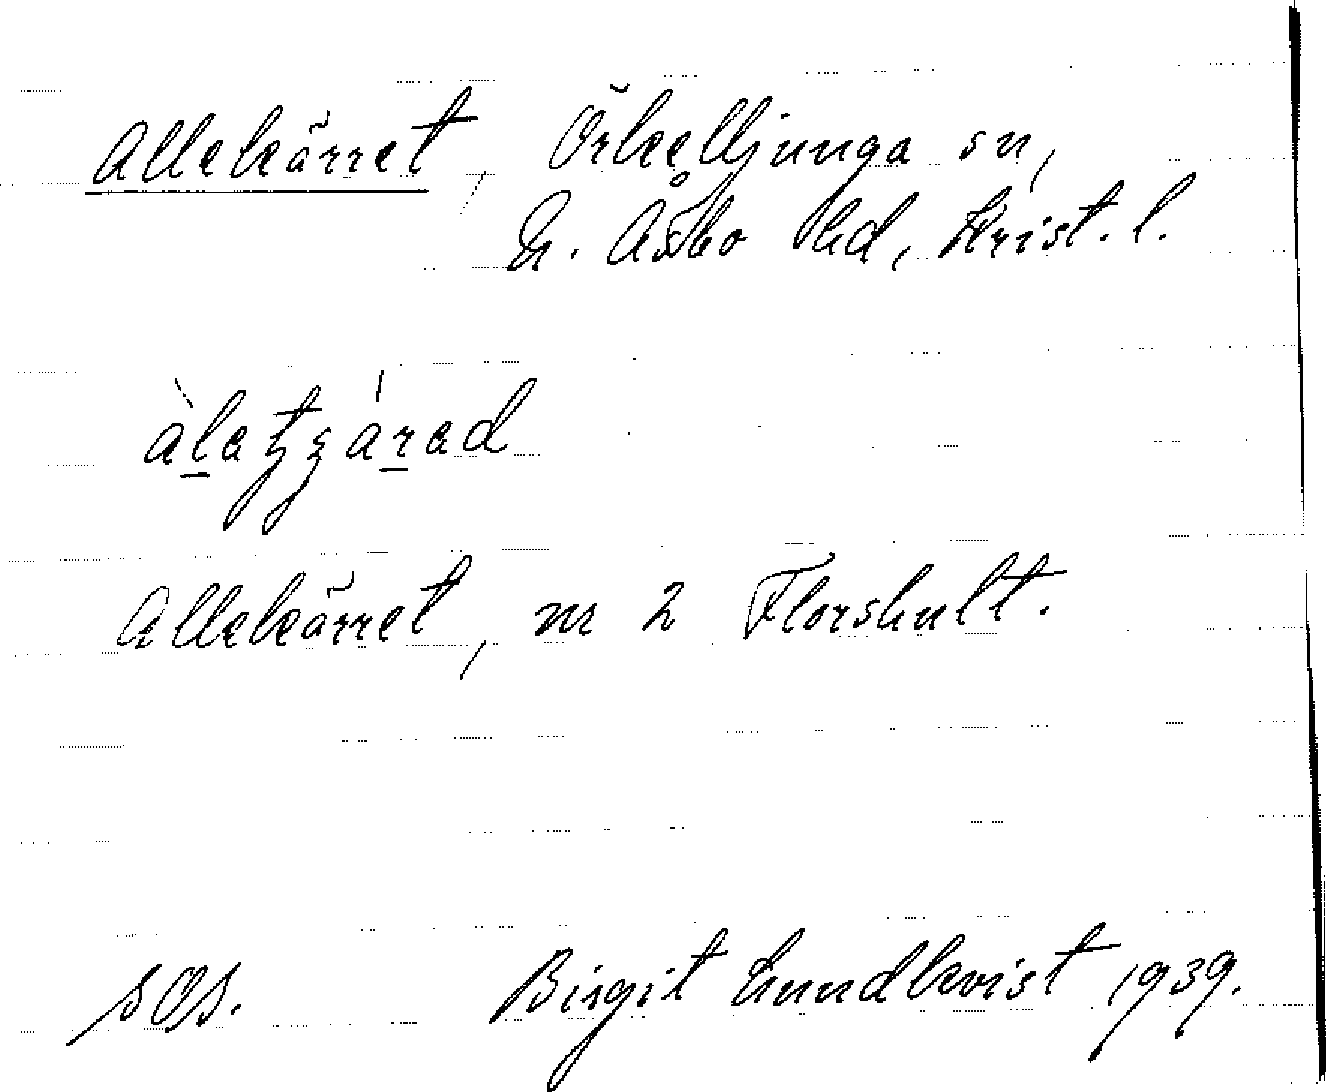 Allekärret, Örkelljunga sn,
N. Åsbo hd, Krist. l.
Allekärret, nr 2 Florshult.
SOS. Birgit Lundkvist 1939.